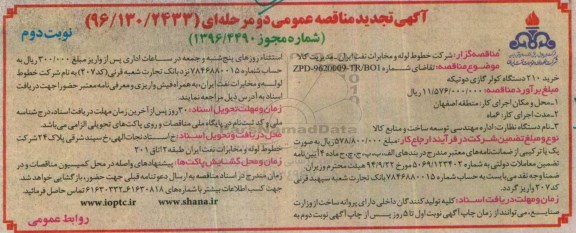 آگهی تجدید مناقصه عمومی دو مرحله‌ای (۹۶/۱۳۰/۲۴۳۳)
(شماره مجوز ۱۳۹۶/۴۴۹۰)
نوبت دوم
مناقصه‌گزار: شرکت خطوط لوله و مخابرات نفت ایران - مدیریت کالا
موضوع مناقصه: تقاضای شماره ZPD-9620009-TR/BO1
خرید ۲۱۰ دستگاه کولر گازی دوتیکه
مبلغ برآورد مناقصه: ۱۱/۵۷۶/۰۰۰/۰۰۰ ریال
۱ـ محل و مکان اجرای کار: منطقه اصفهان
۲ـ مدت اجرای کار: ۶ ماه
۳ـ نام دستگاه نظارت: اداره مهندسی توسعه ساخت و منابع کالا
نوع و مبلغ تضمین شرکت در فرآیند ارجاع کار: مبلغ ۵۷۸/۸۰۰/۰۰۰ ریال به صورت
یک یا ترکیبی از ضمانت‌نامه‌های معتبر مندرج در بندهای الف، ب، پ، ج، چ، ح ماده ۴ آیین‌نامه
تضمین معاملات دولتی به شماره ۱۲۳۴۰۲/ت۵۰۶۵۹هـ مورخ ۹۴/۹/۲۲ هیئت محترم وزیران
ضمناً وجه نقد می‌بایست به حساب شماره ۷۸۴۶۸۸۰۰۱۵ بانک تجارت شعبه سپهبد قرنی
کد ۲۰۷ واریز گردد.
زمان و مهلت دریافت اسناد: کلیه تولیدکنندگان داخلی دارای پروانه ساخت از وزارت
صنایع، می‌توانند از زمان چاپ آگهی نوبت اول تا ۵ روز پس از چاپ آگهی نوبت دوم به
استثناء روزهای پنج‌شنبه و جمعه در ساعات اداری پس از واریز مبلغ ۳۰۰/۰۰۰ ریال به
حساب شماره ۷۸۴۶۸۸۰۰۱۵ نزد بانک تجارت شعبه قرنی (کد ۲۰۷) به نام شرکت خطوط
لوله و مخابرات نفت ایران، به همراه فیش واریزی و معرفی‌نامه معتبر جهت دریافت
اسناد به آدرس ذیل مراجعه نمایند.
زمان و مهلت تحویل اسناد: ۳۰ روز پس از آخرین زمان مهلت دریافت اسناد، درج شناسه
ملی و کد ثبت‌نام در پایگاه ملی مناقصات و روی پاکت‌های تحویلی الزامی می‌باشد.
محل دریافت و تحویل اسناد: خ استاد نجات‌الهی، خ سپند شرقی پلاک ۲۴ شرکت
خطوط لوله و مخابرات نفت ایران طبقه ۲ اتاق ۲۰۱
زمان و محل گشایش پاکت‌ها: پیشنهادهای واصله در محل کمیسیون مناقصات و در
زمان مندرج در اسناد مناقصه به ارسال دعوتنامه قبلی جهت حضور، بازگشایی خواهد شد.
جهت کسب اطلاعات بیشتر با شماره‌های ۶۱۶۳۰۸۱۸ـ۶۱۶۳۰۳۳۲ تماس حاصل فرمائید.
www.shana.ir
www.ioptc.ir
روابط عمومی